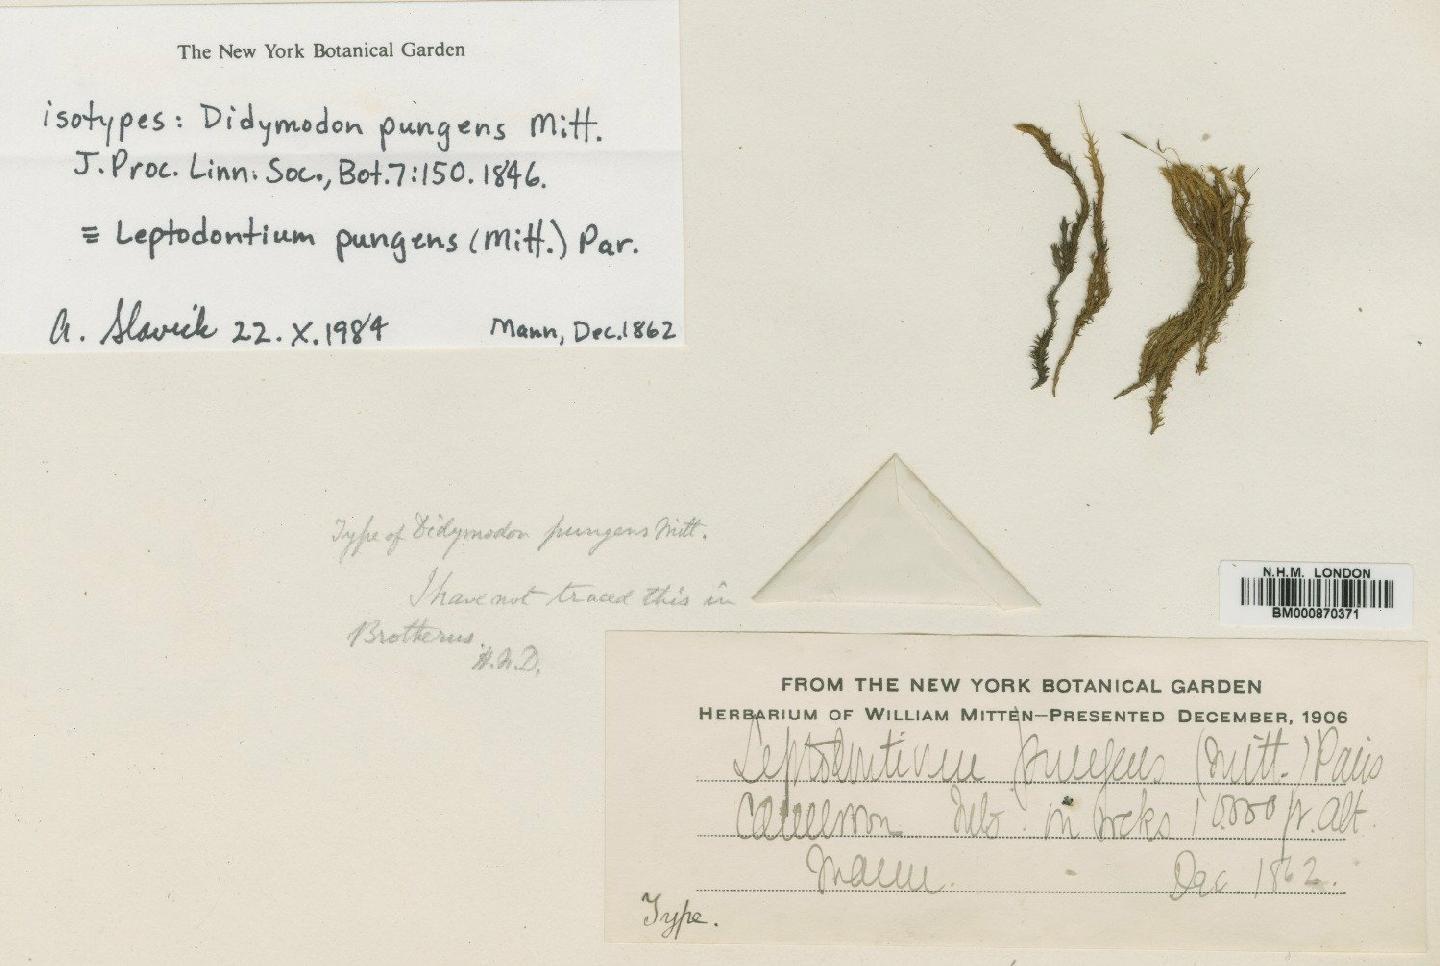 The New York Botanical Garden
isotypes: Didymodon pungens Mitt.
J. Proc. Linn. Soc., Bot. 7:150. 1846.
≡ Leptodontium pungens (Mitt.) Par.
A. Slavick 22. X. 1984
Mann, Dec. 1862
Type of Didymodon pungens Mitt.
I have not traced this in
Brotherus.
H.N.D.
N.H.M. LONDON
BM000870371
FROM THE NEW YORK BOTANICAL GARDEN
HERBARIUM OF WILLIAM MITTEN—PRESENTED DECEMBER, 1906
Leptodontium pungens (Mitt.) Paris
Cameroon Mts. on rocks 10.000 ft. alt.
Mann. Dec. 1862.
Type.